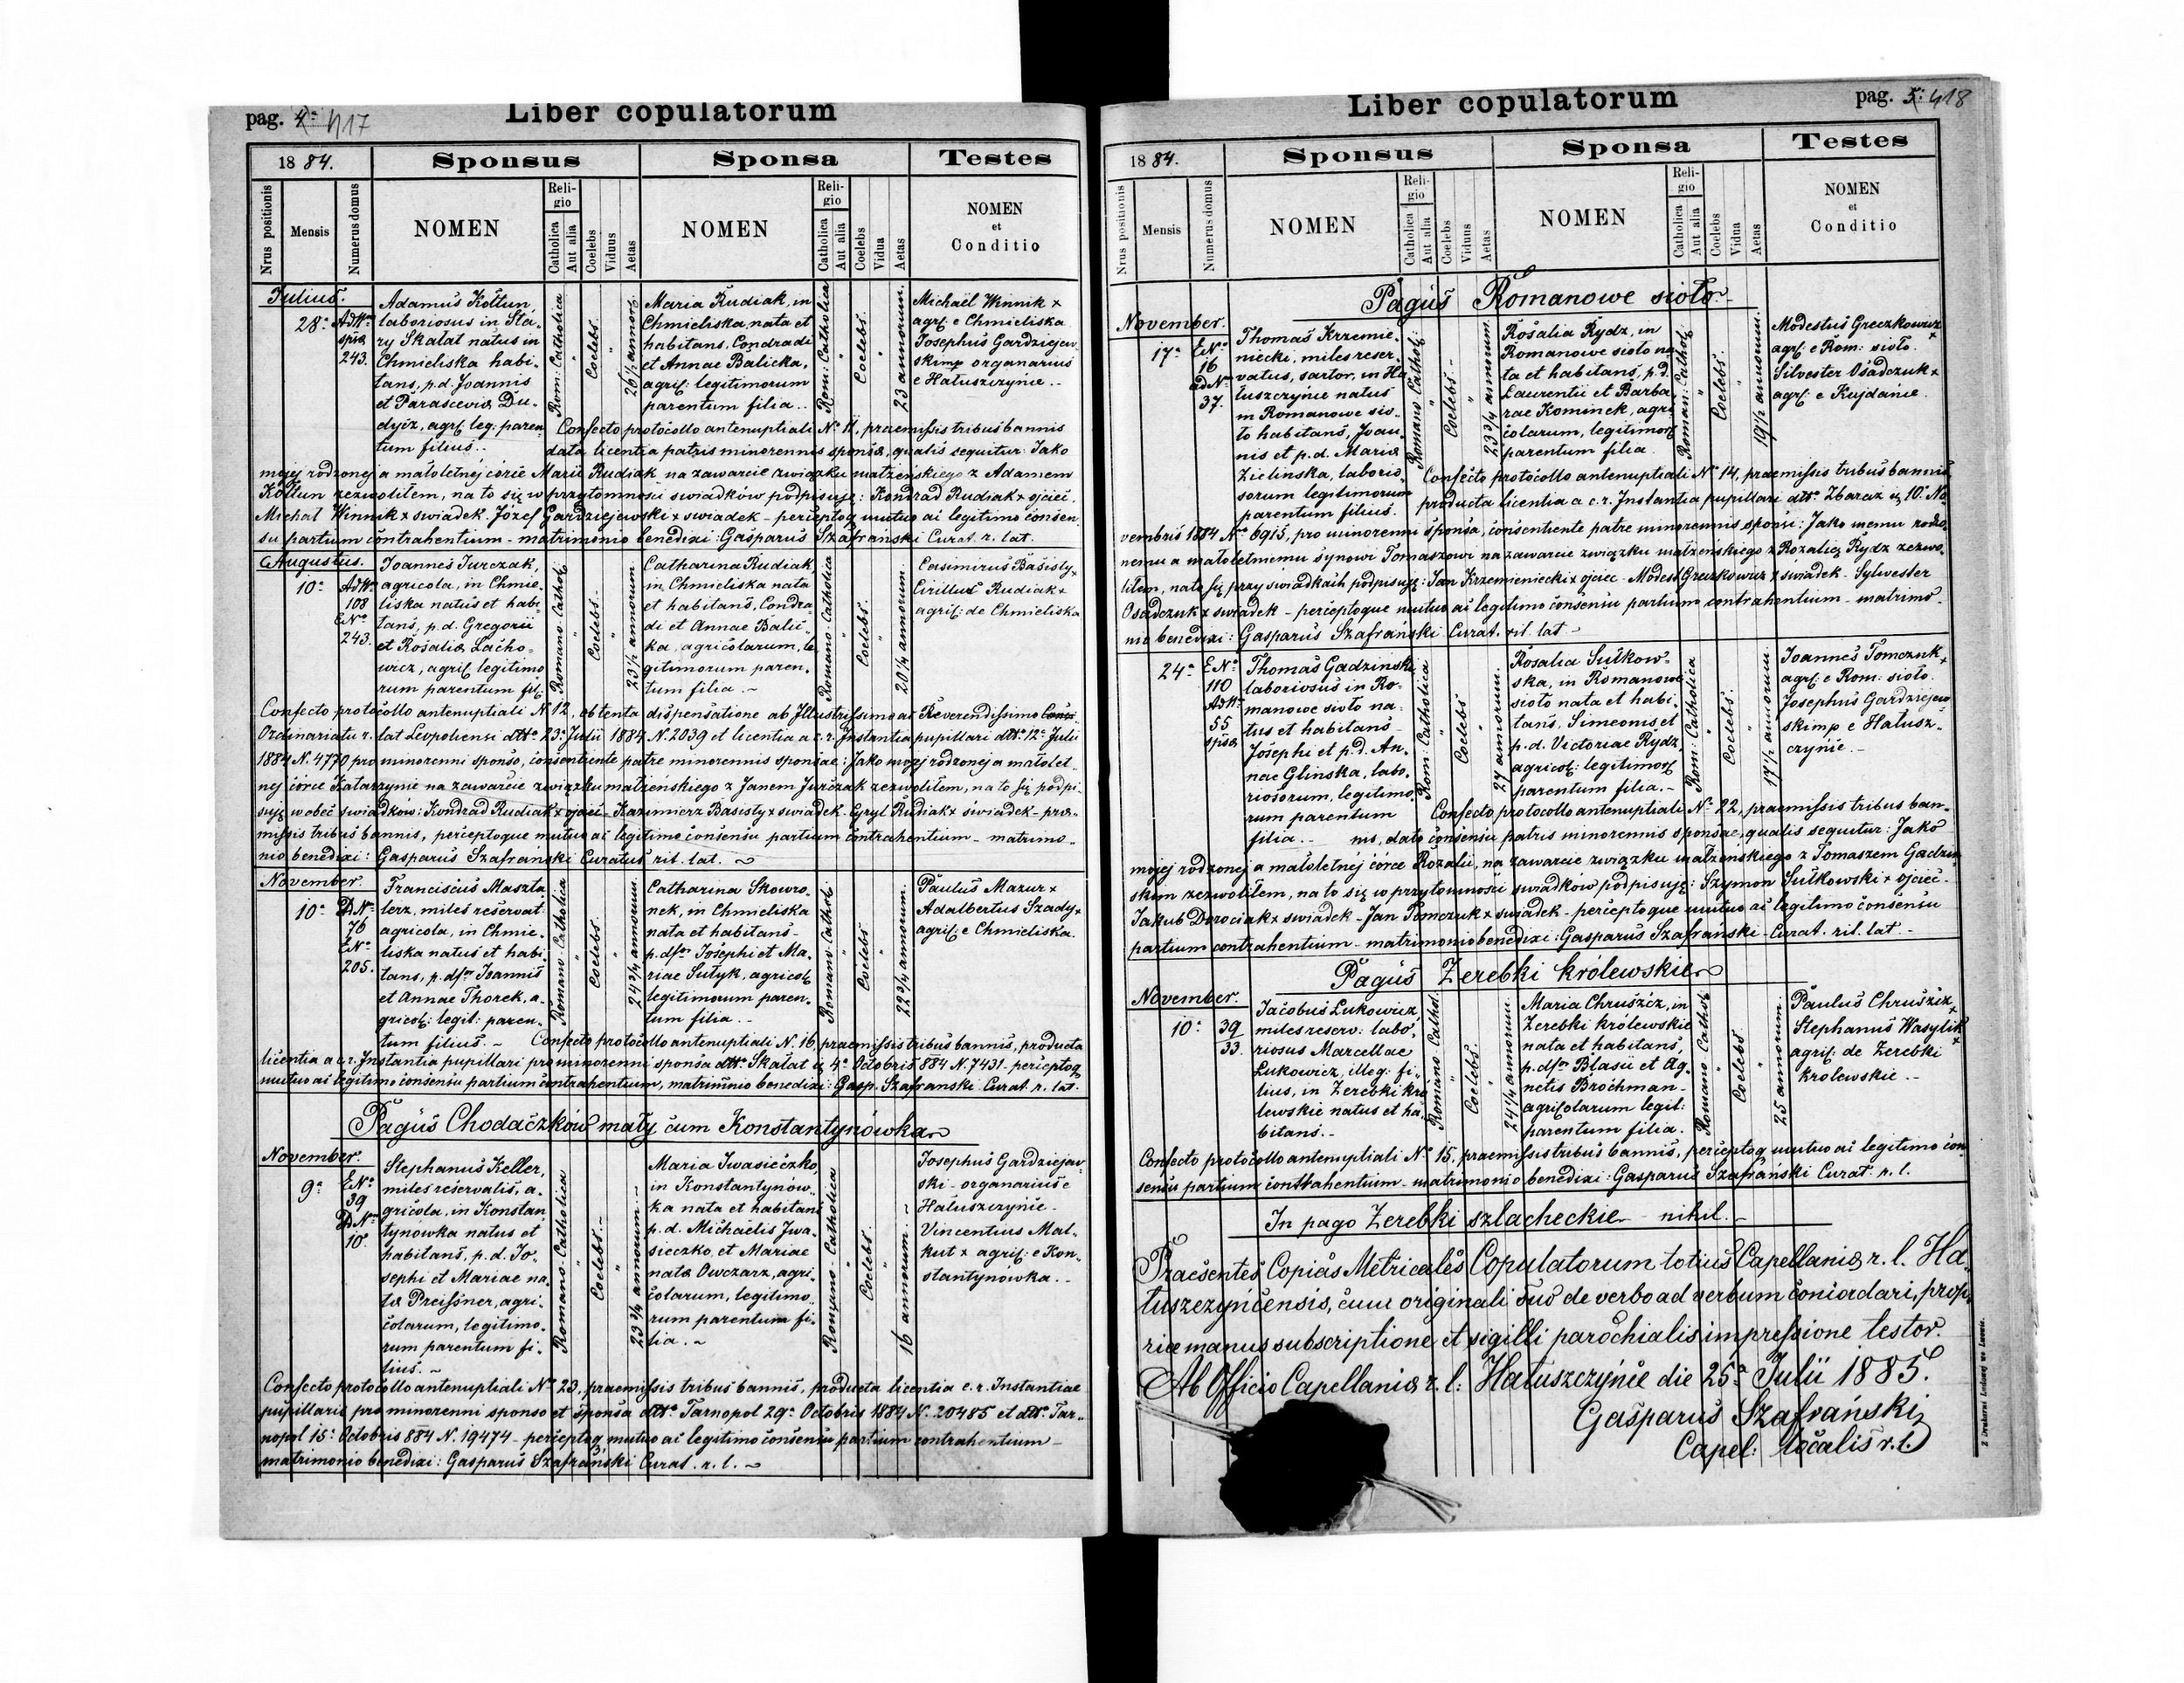 pag. 4. 417
Liber copulatorum
1884.
Sponsus
Sponsa
Testes
Nrus positionis
Mensis
Numerus domus
NOMEN
Religio
Catholica
Aut alia
Coelebs
Viduus
Aetas
NOMEN
Religio
Catholica
Aut alia
Coelebs
Vidua
Aetas
NOMEN
et
Conditio
Julius.
28a
Ad No
spsa
243.
Adamus Kołtun
laboriosus in Sta-
ry Skałat natus in
Chmieliska habi-
tans, p.d. Joannis
et Parascevis Du-
dycz, agrf. leg: paren
tum filius..
Rom: Catholica
"
Coelebs.
"
26 1/2 annorũ
Maria Rudiak, in
Chmieliska nata et
habitans. Condradi
et Annae Balicka,
agrif: legitimorum
parentum filia..
Rom: Catholica
"
Coelebs.
"
23 annorum.
Michaël Winnik +
agrf. e Chmieliska
Josephus Gardziejew
skimp organarius
e Hałuszczynie..
Confecto protocollo antenuptiali No 11, praemissis tribus bannis
data licentia patris minorennis sponsa, qualis sequitur: Jako
mojej rodzonej a małoletniéj córce Marii Rudiak na zawarcie związku małżeńskiego z Adamem
Kołtun zezwoliłem, na to się w przytomności swiadków podpisuję: Kondrad Rudiak + ojciec.
Michał Winnik + swiadek. Józef Gardziejewski + swiadek - perceptoq mutuo ac legitimo consen
su partium contrahentium - matrimonio benedixi: Gasparus Szafrański Curat. r. lat.
Augustus.
10a
Ad No
108
E No
243.
Joannes Jurczak,
agricola, in Chmie-
liska natus et habi-
tans, p.d. Gregorii
et Rosalia Lacho-
wicz, agrif. legitimo
rum parentum fil:
Romano-Cathol:
"
Coelebs.
"
23 1/2 annorum
Catharina Rudiak
in Chmieliska nata
et habitans, Condra-
di et Annae Balic-
ka, agricolarum, le
gitimorum paren-
tum filia.~
Romano-Catholica
"
Coelebs.
"
20 1/4 annorum.
Casimirus Basisty +
Cirillus Rudiak +
agrif: de Chmieliska
Confecto protocollo antenuptiali N. 12, obtenta dispensatione ab Illustrissimo ac Reverendissimo
Ordinariatu r. lat Leopoliensi dtto. 23a Julii 1884 N. 2039 et licentia a c. r. Instantia pupillari dtto. 12a Julii
1884 N. 4770 pro minorenni sponso, consentiente patre minorennis sponsae: Jako mojej rodzonej a małolet-
nej córce Katarzynie na zawarcie związku małżeńskiego z Janem Jurczak zezwoliłem, na to się podpi-
suję wobec swiadków: Kondrad Rudiak + ojciec - Kazimierz Basisty + swiadek - Cyryl Rudiak + świadek - prae-
missis tribus bannis, perceptoque mutuo ac legitimo consensu partium contrahentium - matrimo-
nio benedixi: Gasparus Szafrański Curatus rit. lat. ~
November.
10a
D No
76
E No
205.
Franciscus Maszta
lerz, miles reservat
agricola, in Chmie-
liska natus et habi-
tans, p. dfor Joannis
et Annae Thorek, a-
gricol: legit: paren-
tum filius. ~
Romano-Catholica
"
Coelebs
"
24 3/4 annorum.
Catharina Skowro-
nek, in Chmieliska
nata et habitans -
p. dfor Josephi et Ma-
riae Sutyk, agricol:
legitimorum paren-
tum filia. -
Romano-Cathol:
"
Coelebs
"
22 3/4 annorum.
Paulus Mazur +
Adalbertus Szady +
agrif: e Chmieliska.
Confecto protocollo antenuptiali N. 16, praemissis tribus bannis, producta
licentia a c. r. Instantia pupillari pro minorenni sponsa dtto. Skałat 4a Octobris 884 N. 7431 - perceptoq
mutuo ac legitimo consensu partium contrahentium, matrimonio benedixi: Gasp. Szafranski Curat. r. lat.
Pagus Chodaczków mały cum Konstantynówka
November.
9a
E No
39
D No
10.
Stephanus Keller,
miles reservatis, a-
gricola, in Konstan
tynowka natus et
habitans, p.d. Jo-
sephi et Mariae na
ta Preissner, agri-
colarum, legitimo-
rum parentum fi-
lius. ~
Romano-Catholica
"
Coelebs. ~
"
23 3/4 annorum -
Maria Iwasieczko
in Konstantynów-
ka nata et habitans
p. d. Michaelis Iwa-
sieczko, et Mariae
nata Owczarz, agri-
colarum, legitimo-
rum parentum fi-
lia. ~
Romano-Catholica
"
Coelebs
"
16 annorum. ~
Josephus Gardziejew-
ski - organarius e
Hałuszczynie -
Vincentius Mał-
kut + agrif: e Kon-
stantynówka. -
Confecto protocollo antenuptiali No 23, praemissis tribus bannis, producta licentia c. r. Instantiae
pupillaris pro minorenni sponso et sponsa dtto. Tarnopol 29a Octobris 1884 N. 20485 et dtto. Tar-
nopol 15a Octobris 884 N. 19474 - perceptoq mutuo ac legitimo consensu partium contrahentium -
matrimonio benedixi: Gasparus Szafrański Curat. r. l. ~
Liber copulatorum
pag. 5. 418
1884.
Sponsus
Sponsa
Testes
Nrus positionis
Mensis
Numerus domus
NOMEN
Religio
Catholica
Aut alia
Coelebs
Viduus
Aetas
NOMEN
Religio
Catholica
Aut alia
Coelebs
Vidua
Aetas
NOMEN
et
Conditio
Pagus Romanowe sioło
November.
17a
E No
16
ad No
37.
Thomas Krzemie-
niecki, miles reser-
vatus, sartor, in Ha
łuszczynie natus
in Romanowe sio-
ło habitans, Joan-
nis et p.d. Maria
Zielinska, laborio-
sorum legitimorum
parentum filius.
Romano-Cathol:
"
Coelebs -
"
23 3/4 annorum
Rosalia Rydz, in
Romanowe sioło na
ta et habitans, p.d.
Laurentii et Barba
rae Kominek, agri
colarum, legitimor
parentum filia
Roman: Cathol:
"
Coelebs.
"
19 1/2 annorum.
Modestus Greczkowicz +
agrf. e Rom: sioło.
Silvester Osadczuk +
agrf. e Kujdanie.
Confecto protocollo antenuptiali No 14, praemissis tribus bannis,
producta licentia a c. r. Instantia pupillari dtto. Zbaraz 10a No
vembris 1884 No 6915, pro minorenni sponsa, consentiente patre minorennis sponsi: Jako memu rodzo-
nemu a małoletniemu synowi Tomaszowi na zawarcie związku małżeńskiego z Rozalią Rydz zezwo-
liłem, na to się przy swiadkach podpisuję: Jan Krzemieniecki + ojciec - Modest Greczkowicz + świadek - Sylwester
Osadczuk + swiadek - perceptoque mutuo ac legitimo consensu partium contrahentium - matrimo-
nio benedixi: Gasparus Szafrański Curat. rit. lat ~
24a
E No
110
Ad No
55
spsa
Thomas Gadzinski
laboriosus in Ro-
manowe sioło na-
tus et habitans -
Josephi et p.d. An-
nae Glinska, labo-
riosorum, legitimo
rum parentum
filia. -
Rom: Catholica
"
Coelebs
"
27 annorum.
Rosalia Sułkow-
ska, in Romanowe
sioło nata et habi-
tans. Simeonis et
p.d. Victoriae Rydz
agricol: legitimor
parentum filia. -
Rom: Catholica
"
Coelebs.
"
17 1/2 annorum.
Joannes Tomczuk +
agrf. e Rom: sioło.
Josephus Gardziejew
skimp e Hałusz-
czynie. -
Confecto protocollo antenuptiali No 22, praemissis tribus ban-
nis, dato consensu patris minorennis sponsae, qualis sequitur: Jako
mojej rodzonej a małoletnéj córce Rozalii, na zawarcie związku małżenskiego z Tomaszem Gadzin
skim zezwoliłem, na to się w przytomności swiadków podpisuję: Szymon Sułkowski + ojciec -
Jakub Dorociak + swiadek - Jan Tomczuk + swiadek - perceptoque mutuo ac legitimo consensu
partium contrahentium - matrimonio benedixi: Gasparus Szafrański - Curat. rit. lat. -
Pagus Zerebki królewskie
November.
10a
39
33.
Jacobus Łukowicz,
miles reserv: labo-
riosus Marcellae
Łukowicz, illeg: fi-
lius, in Zerebki kró
lewskie natus et ha-
bitans. -
Romano Cathol:
"
Coelebs.
"
24 1/4 annorum
Maria Chruszcz, in
Zerebki królewskie
nata et habitans,
p. dfor Blasii et Ag-
netis Brochman -
agricolarum legit:
parentum filia.
Romano Cathol:
"
Coelebs
"
25 annorum.
Paulus Chruszcz +
Stephanus Wasylik +
agrif: de Zerebki
krolewskie. -
Confecto protocollo antenuptiali No 15, praemissis tribus bannis, perceptoq mutuo ac legitimo con
sensu partium contrahentium - matrimonio benedixi: Gasparus Szafrański Curat. r. l.
In pago Zerebki szlacheckie - nihil. -
Praesentes Copias Metricales Copulatorum totius Capellania r. l. Ha-
łuszczyńcensis, cum originali suo de verbo ad verbum concordari, prop-
riae manus subscriptione et sigilli parochialis impressione testor.
Ab Officio Capellania r. l. Hałuszczyńce die 25a Julii 1885.
Gasparus Szafrański
Capel: localis r. l.
Z Drukarni Ludowej we Lwowie.